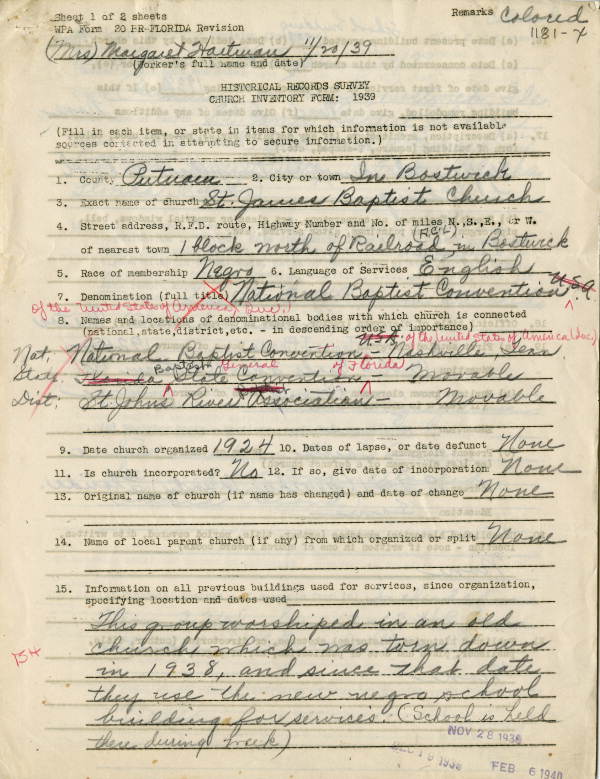 Sheet 1 of 2 sheets
WPA Form 20 HR-FLORIDA Revision
Remarks Colored
1181-X
(Mrs) Margaret Hartman 11/20/39
(Worker's full name and date)
HISTORICAL RECORDS SURVEY
CHURCH INVENTORY FORM: 1939
(Fill in each item, or state in items for which information is not available
sources contacted in attempting to secure information.)
1. County Putnam 2. City or town In Bostwick
3. Exact name of church St. James Baptist Church
4. Street address, R.F.D. route, Highway Number and No. of miles N.,S.,E., or W.
of nearest town 1 block north of Railroad (ACL), in Bostwick
5. Race of membership Negro 6. Language of Services English
7. Denomination (full title) National Baptist Convention, U.S.A.
of the United States of America (Inc.)
8. Names and locations of denominational bodies with which church is connected
(national,state,district,etc. - in descending order of importance)
U.S.A. of the United States of America (Inc.)
Nat. National Baptist Convention - Nashville, Tenn
State Florida Baptist General State Convention of Florida - Movable
Dist. St. Johns River Association - Movable
9. Date church organized 1924 10. Dates of lapse, or date defunct None
11. Is church incorporated? No 12. If so, give date of incorporation None
13. Original name of church (if name has changed) and date of change None
14. Name of local parent church (if any) from which organized or split None
15. Information on all previous buildings used for services, since organization,
specifying location and dates used
This group worshiped in an old
church which was torn down
in 1938, and since that date
they use the new negro school
building for services. (School is held
there during week)
NOV 28 1939
DEC 16 1939
FEB 6 1940